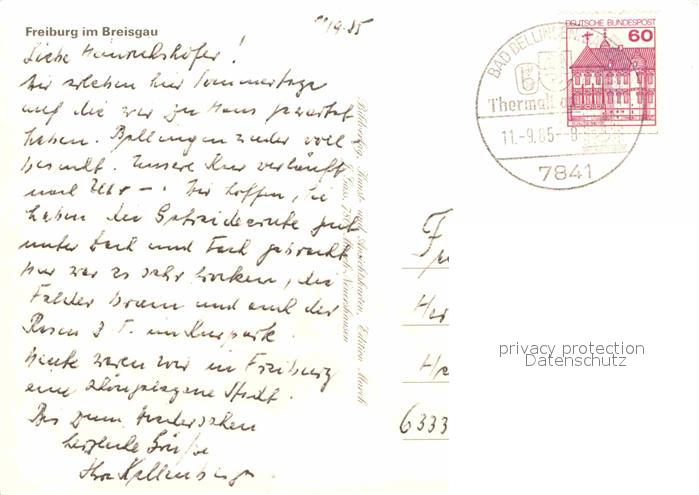 Freiburg im Breisgau
9.85
Liebe Heinrichshöfer!
Wir erleben hier Sommertage
auf die wir zu Haus gewartet
haben. Bellingen wieder voll
besucht. Unsere Kur verläuft
nach Uhr –. Wir hoffen, Sie
haben die Getreideernte gut
unter Dach und Fach gebracht
hier war es sehr trocken, die
Felder braun und auch der
Rasen z. T. im Kurpark.
Heute waren wir in Freiburg
eine Stadt.
Bis zum Wiedersehen
herzliche Grüße
Ihre Kellenberger
DEUTSCHE BUNDESPOST
60
BAD BELLINGEN
Thermal
11.-9.85--8
7841
Kunst- und Ansichtskarten, Edition
6333
privacy protection
Datenschutz